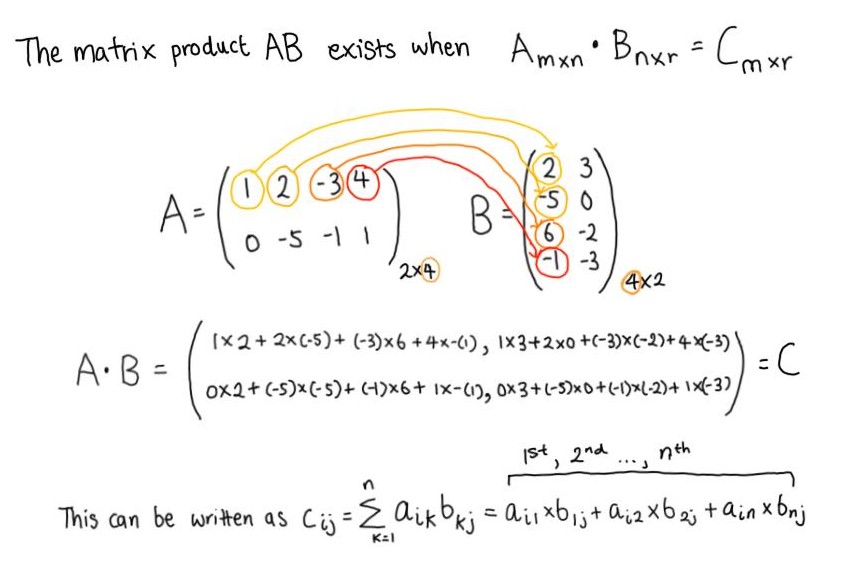 The matrix product AB exists when A m×n · B n×r = C m×r
A = ( 1 2 -3 4
0 -5 -1 1 ) 2×4
B = ( 2 3
-5 0
6 -2
-1 -3 ) 4×2
A·B = ( 1×2 + 2×(-5) + (-3)×6 + 4×-(1), 1×3 + 2×0 + (-3)×(-2) + 4×(-3)
0×2 + (-5)×(-5) + (-1)×6 + 1×-(1), 0×3 + (-5)×0 + (-1)×(-2) + 1×(-3) ) = C
1st, 2nd ..., nth
This can be written as Cij = n Σ K=1 aik bkj = ai1×b1j + ai2×b2j + ain×bnj